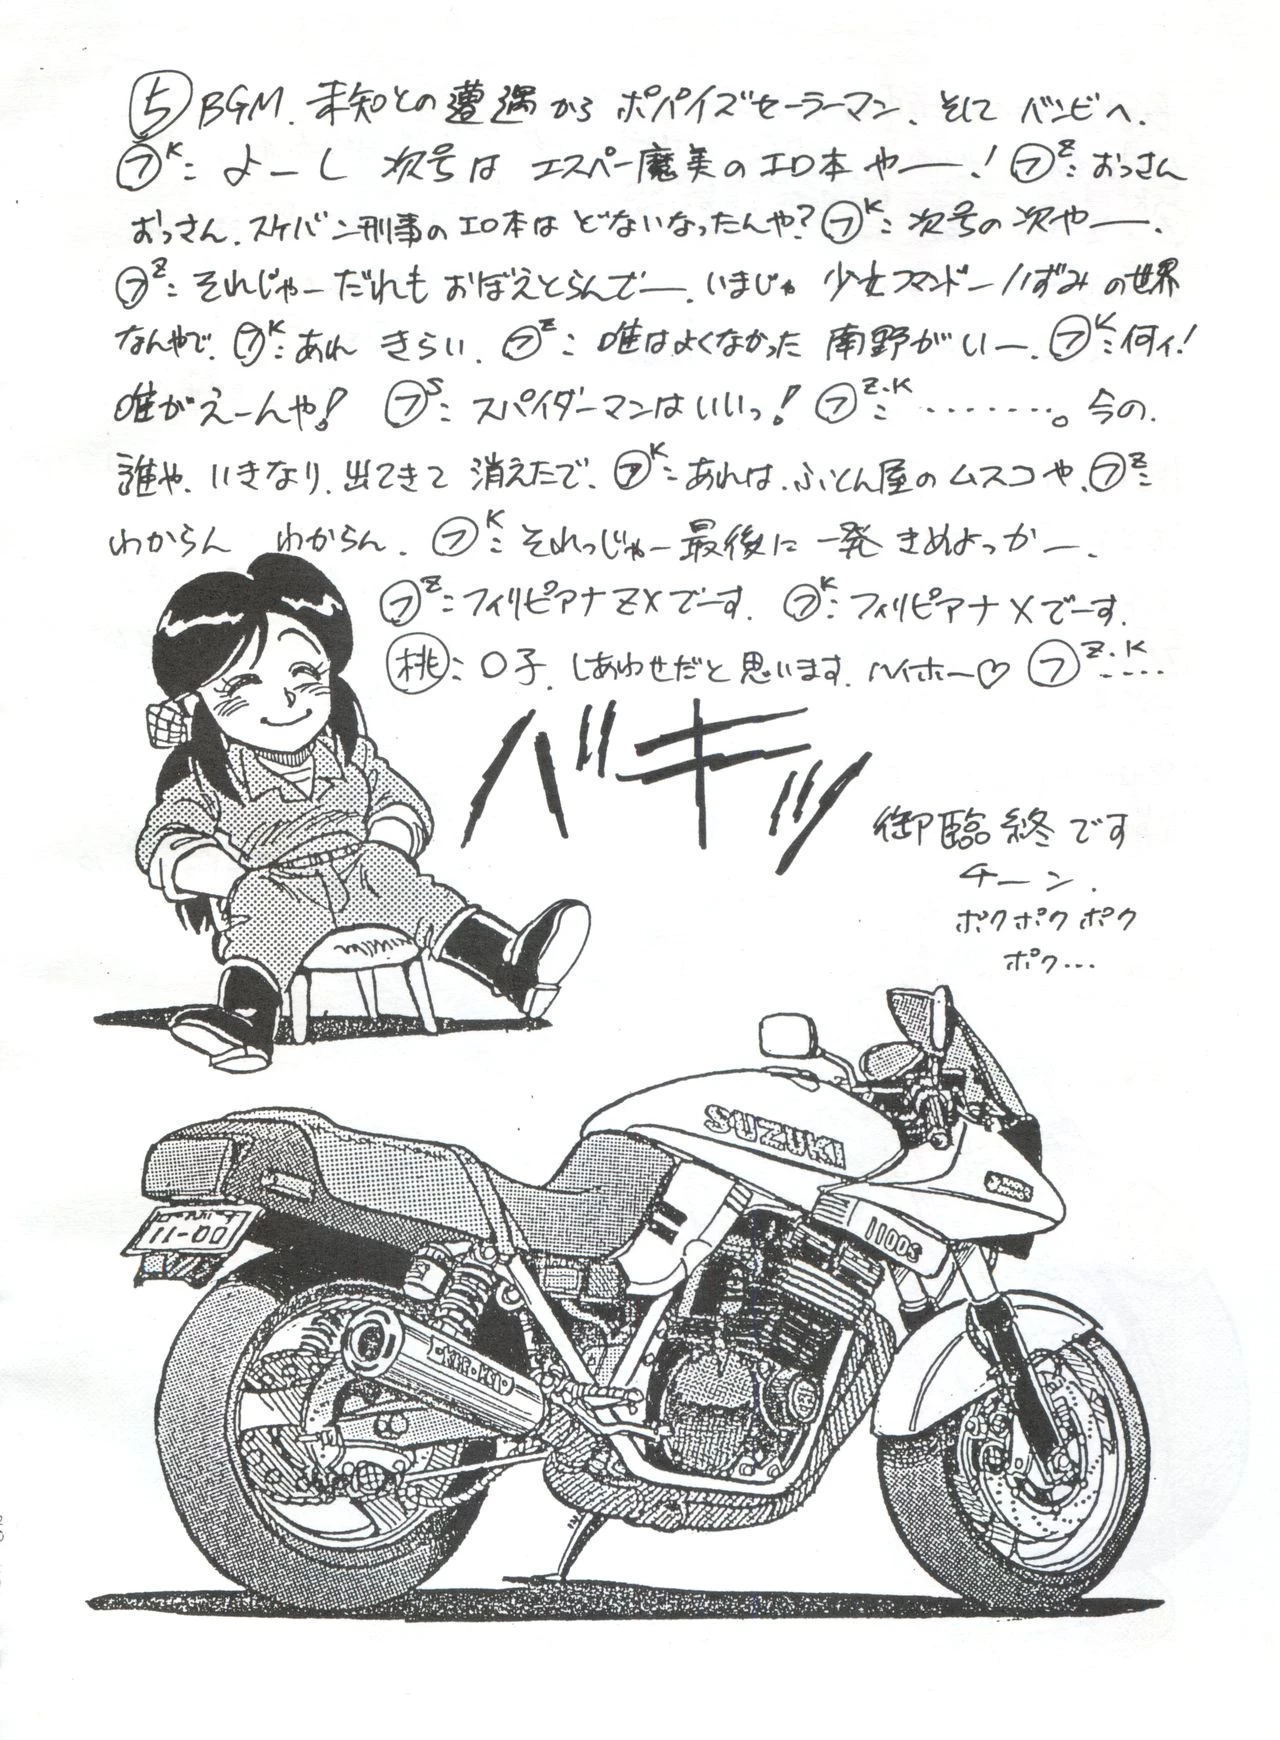 ⑤ BGM. 未知との遭遇から ポパイズセーラーマン、そして バンビへ.
㋫K: よーし 次号は エスパー魔美のエロ本やー! ㋫Z: おっさん
おっさん、スケバン刑事のエロ本は どないなったんや? ㋫K: 次号の次やー.
㋫Z: それじゃー だれも おぼえとらんでー. いまじゃ 少女コマンドーいずみ の世界
なんやで. ㋫K: あれ きらい. ㋫Z: 唯はよくなかった 南野がいー. ㋫K: 何ィ!
唯がえーんや! ㋫S: スパイダーマンはいいっ! ㋫Z・K: ・・・・・・・・。 今の.
誰や、いきなり、出てきて 消えたで、 ㋫K: あれは、ふとん屋のムスコや、㋫Z:
わからん わからん. ㋫K: それっじゃー 最後に 一発 きめよっかー.
㋫Z: フィリピアナZXでーす. ㋫K: フィリピアナXでーす.
桃: ○子. しあわせだと思います. ハイホー♡ ㋫Z・K ・・・・
バキッ
御臨終です
チーン.
ポクポクポク
ポク…
SUZUKI
1100S
11-00